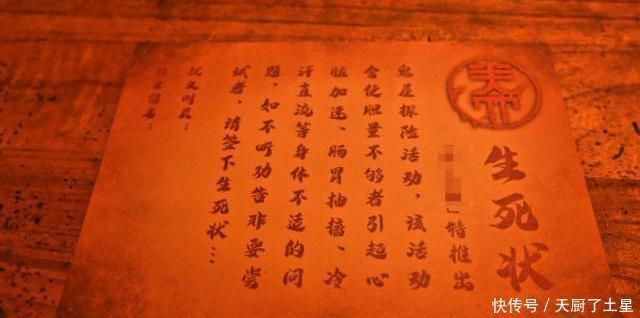 生死状
」特推出
鬼屋探险活动，该活动
会使胆量不够者引起心
脏加速、肠胃抽搐、冷
汗直流等身体不适的问
题，如不听劝告非要尝
试者，请签下生死状…
就义时辰：
留名：
快传号／天厨了土星